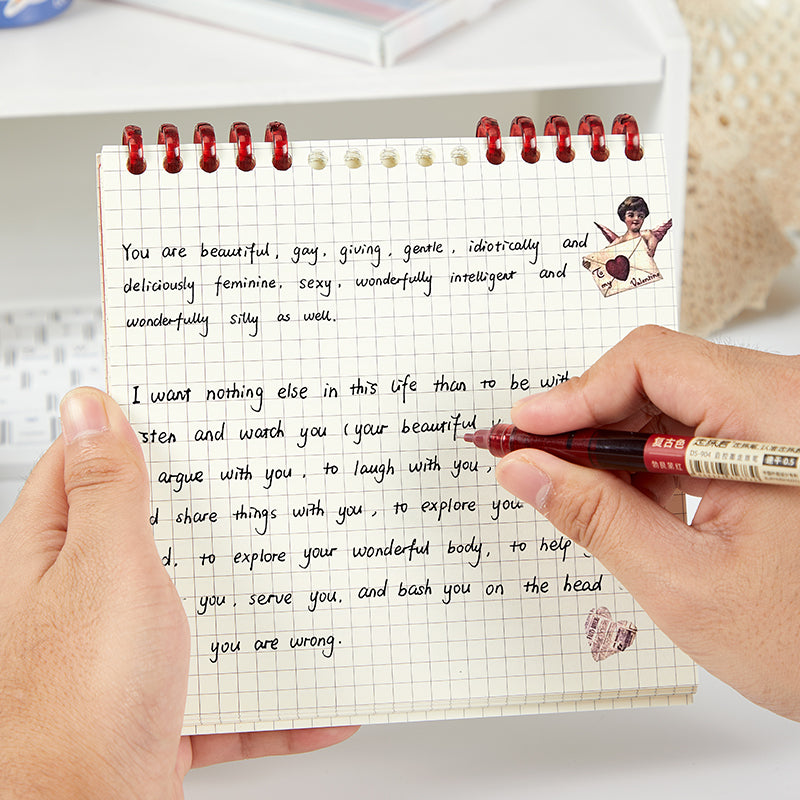 You are beautiful, gay, giving, gentle, idiotically and
deliciously feminine, sexy, wonderfully intelligent and
wonderfully silly as well.
To my Valentine
I want nothing else in this life than to be with
sten and watch you (your beautiful
argue with you, to laugh with you,
d share things with you, to explore you
d, to explore your wonderful body, to help
you, serve you, and bash you on the head
you are wrong.
复古色
勃艮第红
DS-904 直控墨走珠笔
速干 0.5